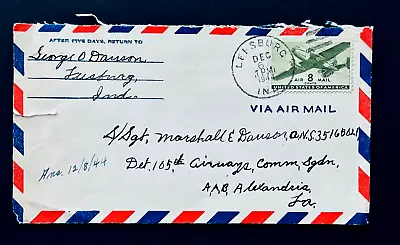 AFTER FIVE DAYS, RETURN TO
George O Dawson
Leesburg,
Ind.
LEESBURG
DEC
6
PM
IND.
AIR 8 MAIL
CENTS
UNITED STATES OF AMERICA
VIA AIR MAIL
S/Sgt, Marshall E Dawson, A.S.N. 35168021
Det. 105th Airways, Comm, Sqdn,
Ans. 12/8/44
A.A.B, Alexandria
La.